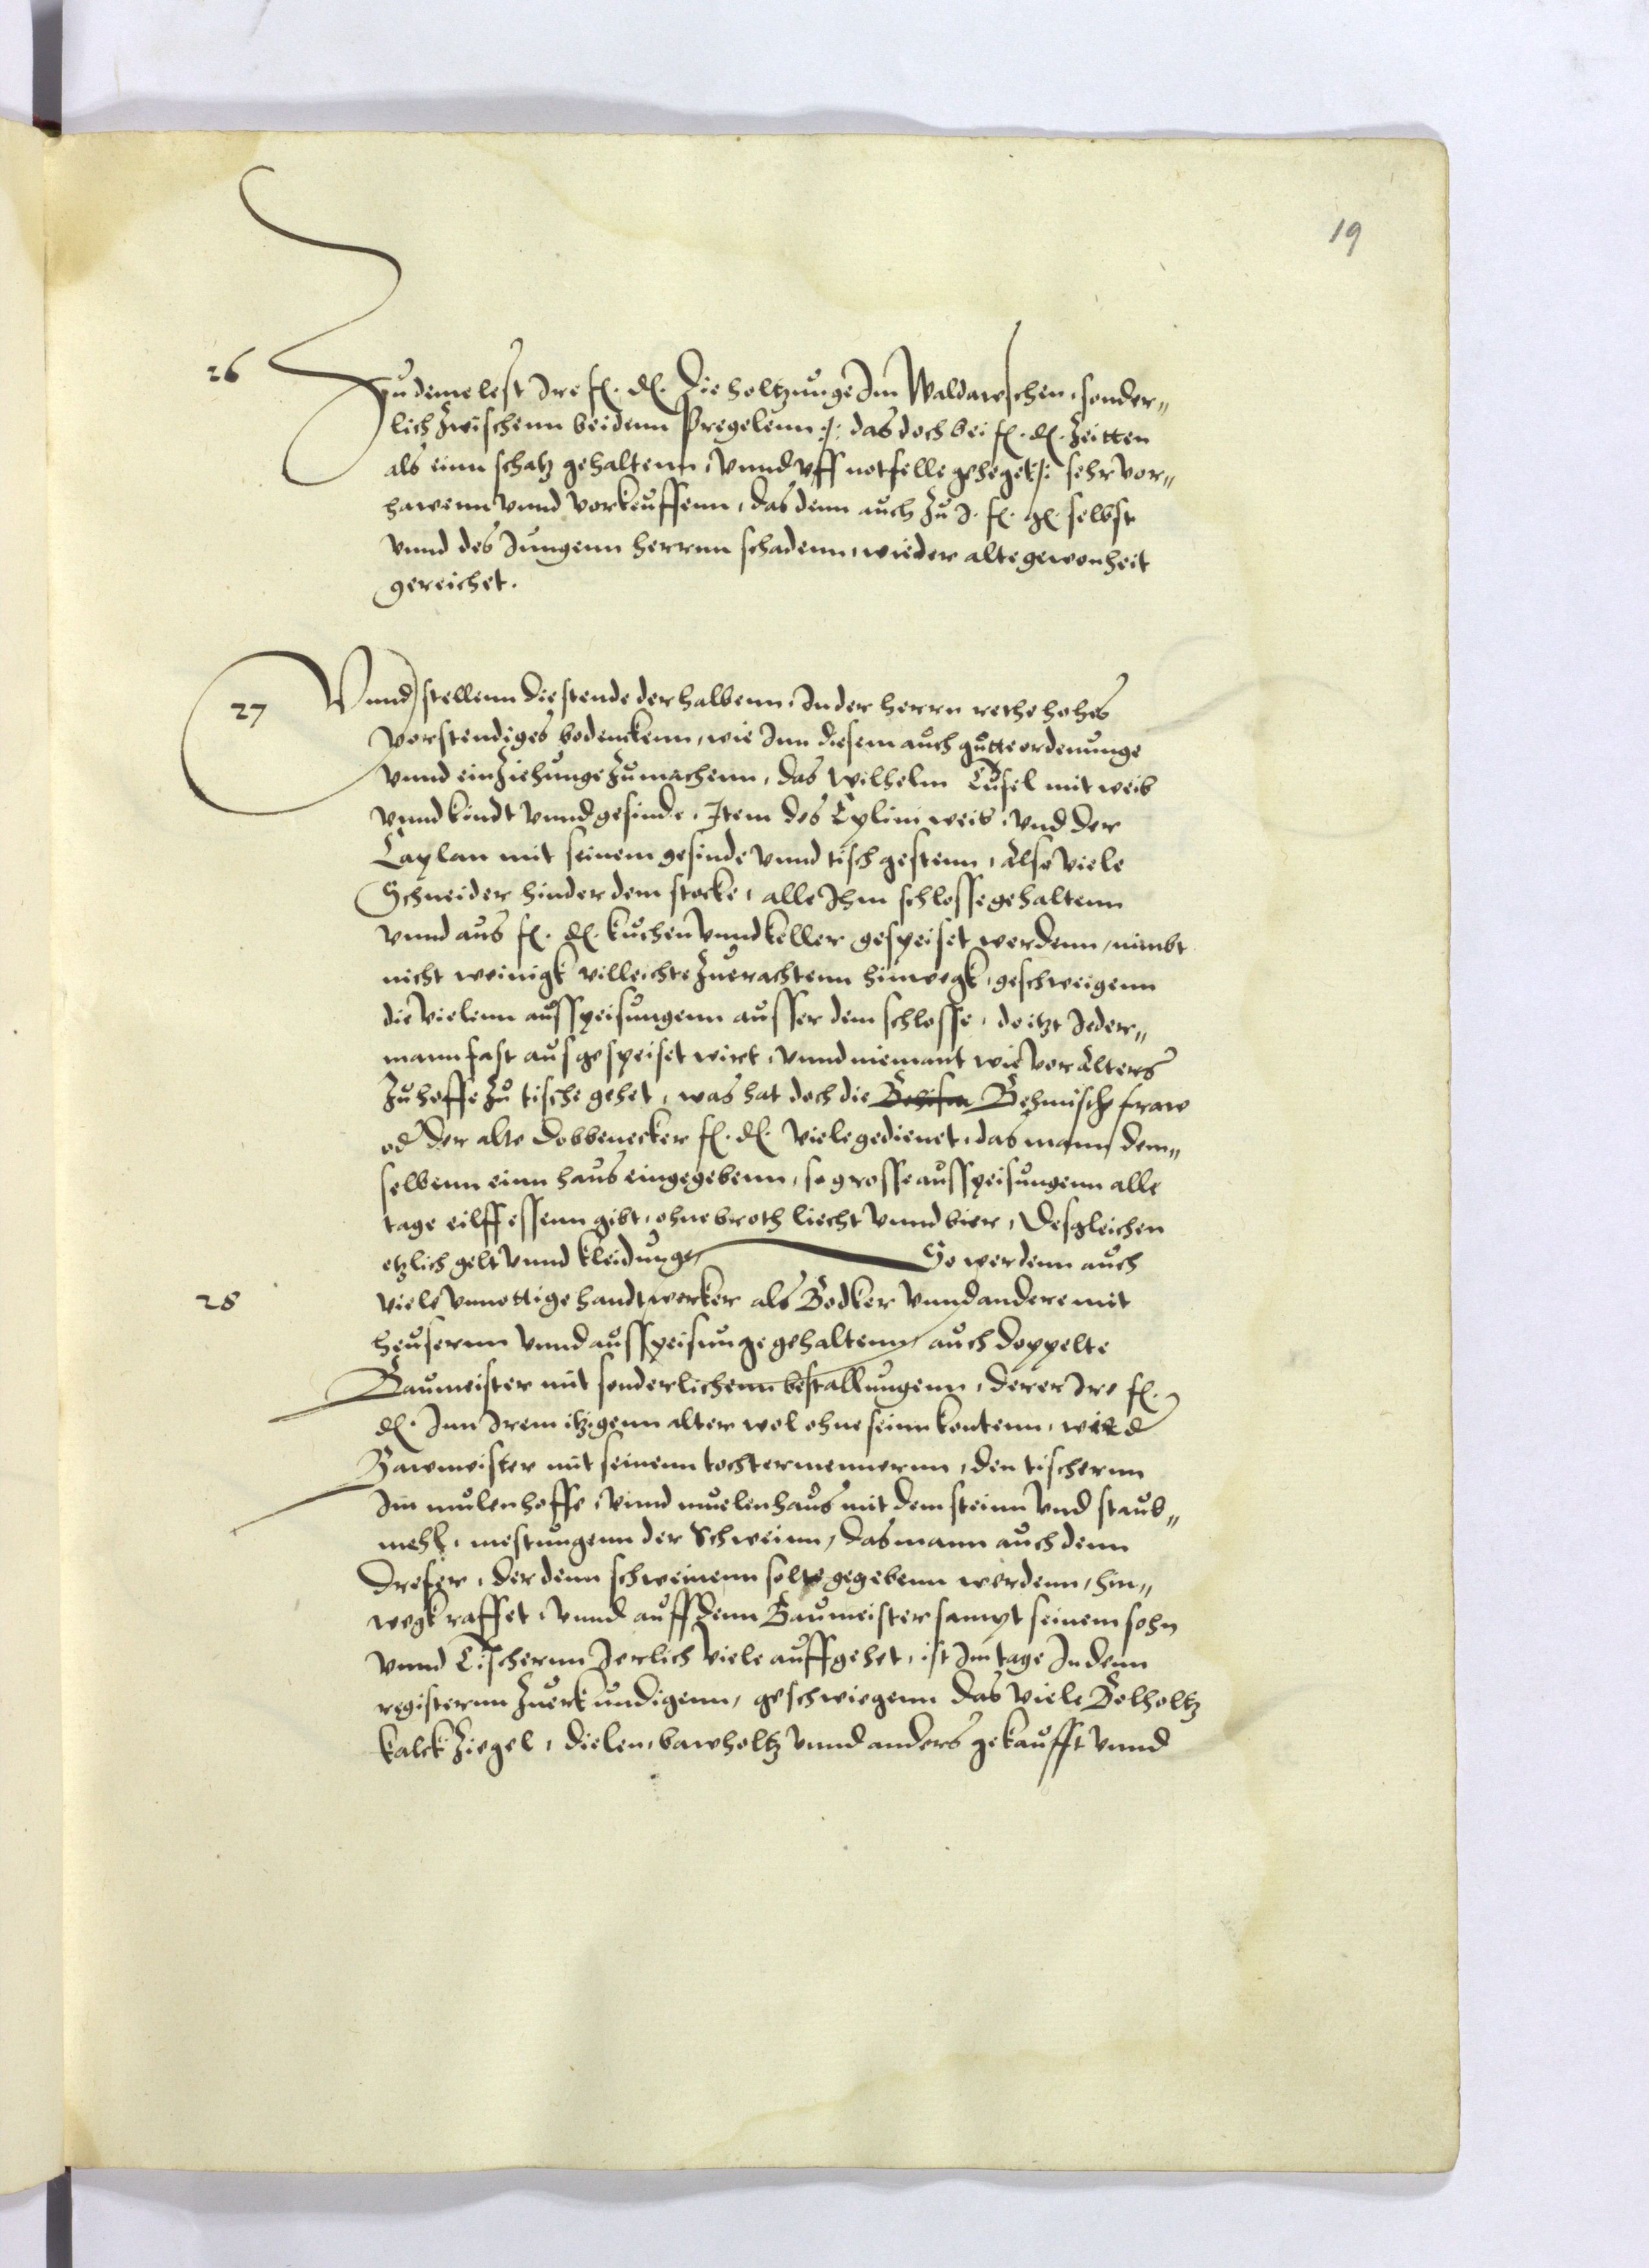 19
26
Zu deme lest Ire f. d. Die holtzunge Im Waldawschen, sonder„
lich Zwischenn beidenn Pregelenn /: das doch bei f. d. Zeitten
als einn schatz gehaltenn, vnnd vff notfelle geheget :/ sehr vor„
hawenn vnnd vorkeuffenn, das denn auch Zu I. f. g. selbst
vnnd des Jungenn herrnn schadenn, wieder alte gewonheit
gereichet.
27
Vnnd stellenn die stende derhalbenn, In der herrn rethe hohes
vorstendiges bedenckenn, wie Inn diesem auch gutte ordenunge
vnnd einziehunge Zumachenn, das Wilhelm Tusel mit weib
vnnd kindt vnnd gesinde, Item des Cylini weib, vnd der
Caplan mit seinem gesinde vnnd tischgestenn, Also viele
Schneider hinder dem stocke, alle Ihm schlosse gehaltenn
vnnd aus f. d. kuchen vnnd keller gespeiset werdenn, nimbt
nicht weinigk villeichte Zuerachtenn hinwegk, geschweigenn
die vielenn ausspeisungenn ausser dem schlosse, do itzt Jeder„
mann fast ausgespeiset wirt, vnnd niemant wie vor alters
Zu hoffe Zu tische gehet, was hat doch die Behmisch fraw
od der alte Dobbenecker f. d. viele gedienet, das mann dem„
selbenn einn haus eingegebenn, so grosse ausspeisungenn alle
tage eilff essenn gibt, ohne broth liecht vnnd bier, Desgleichen
etzlich gelt vnnd kleidunge So werdenn auch
28
viele vnnottige handtwerker als Bodker vnnd andere mit
heusernn vnnd ausspeisunge gehaltenn, auch doppelte
Baumeister mit sonderlichenn bestallungenn, derer Ire f.
d. Inn Irem itzigenn alter wol ohne seinn kontenn, wie d
Bawmeister mit seinenn tochtermennernn, den tischernn
Im mulenhoffe, vnnd muelenhaus mit dem steinn vnd staub„
mehl, mestungenn der Schweinn, das mann auch denn
Dreser, der denn schweinenn solte gegebenn werdenn, hin„
wegk raffet, vnnd auff denn Baumeister sampt seinem sohn
vnnd Tischernn Jerlich viele auffgehet, ist Im tage In denn
registernn Zuerkundigenn, geschwiegenn das viele Bolholtz
kalck Ziegel, dielen, bawholtz vnnd anders gekaufft vnnd